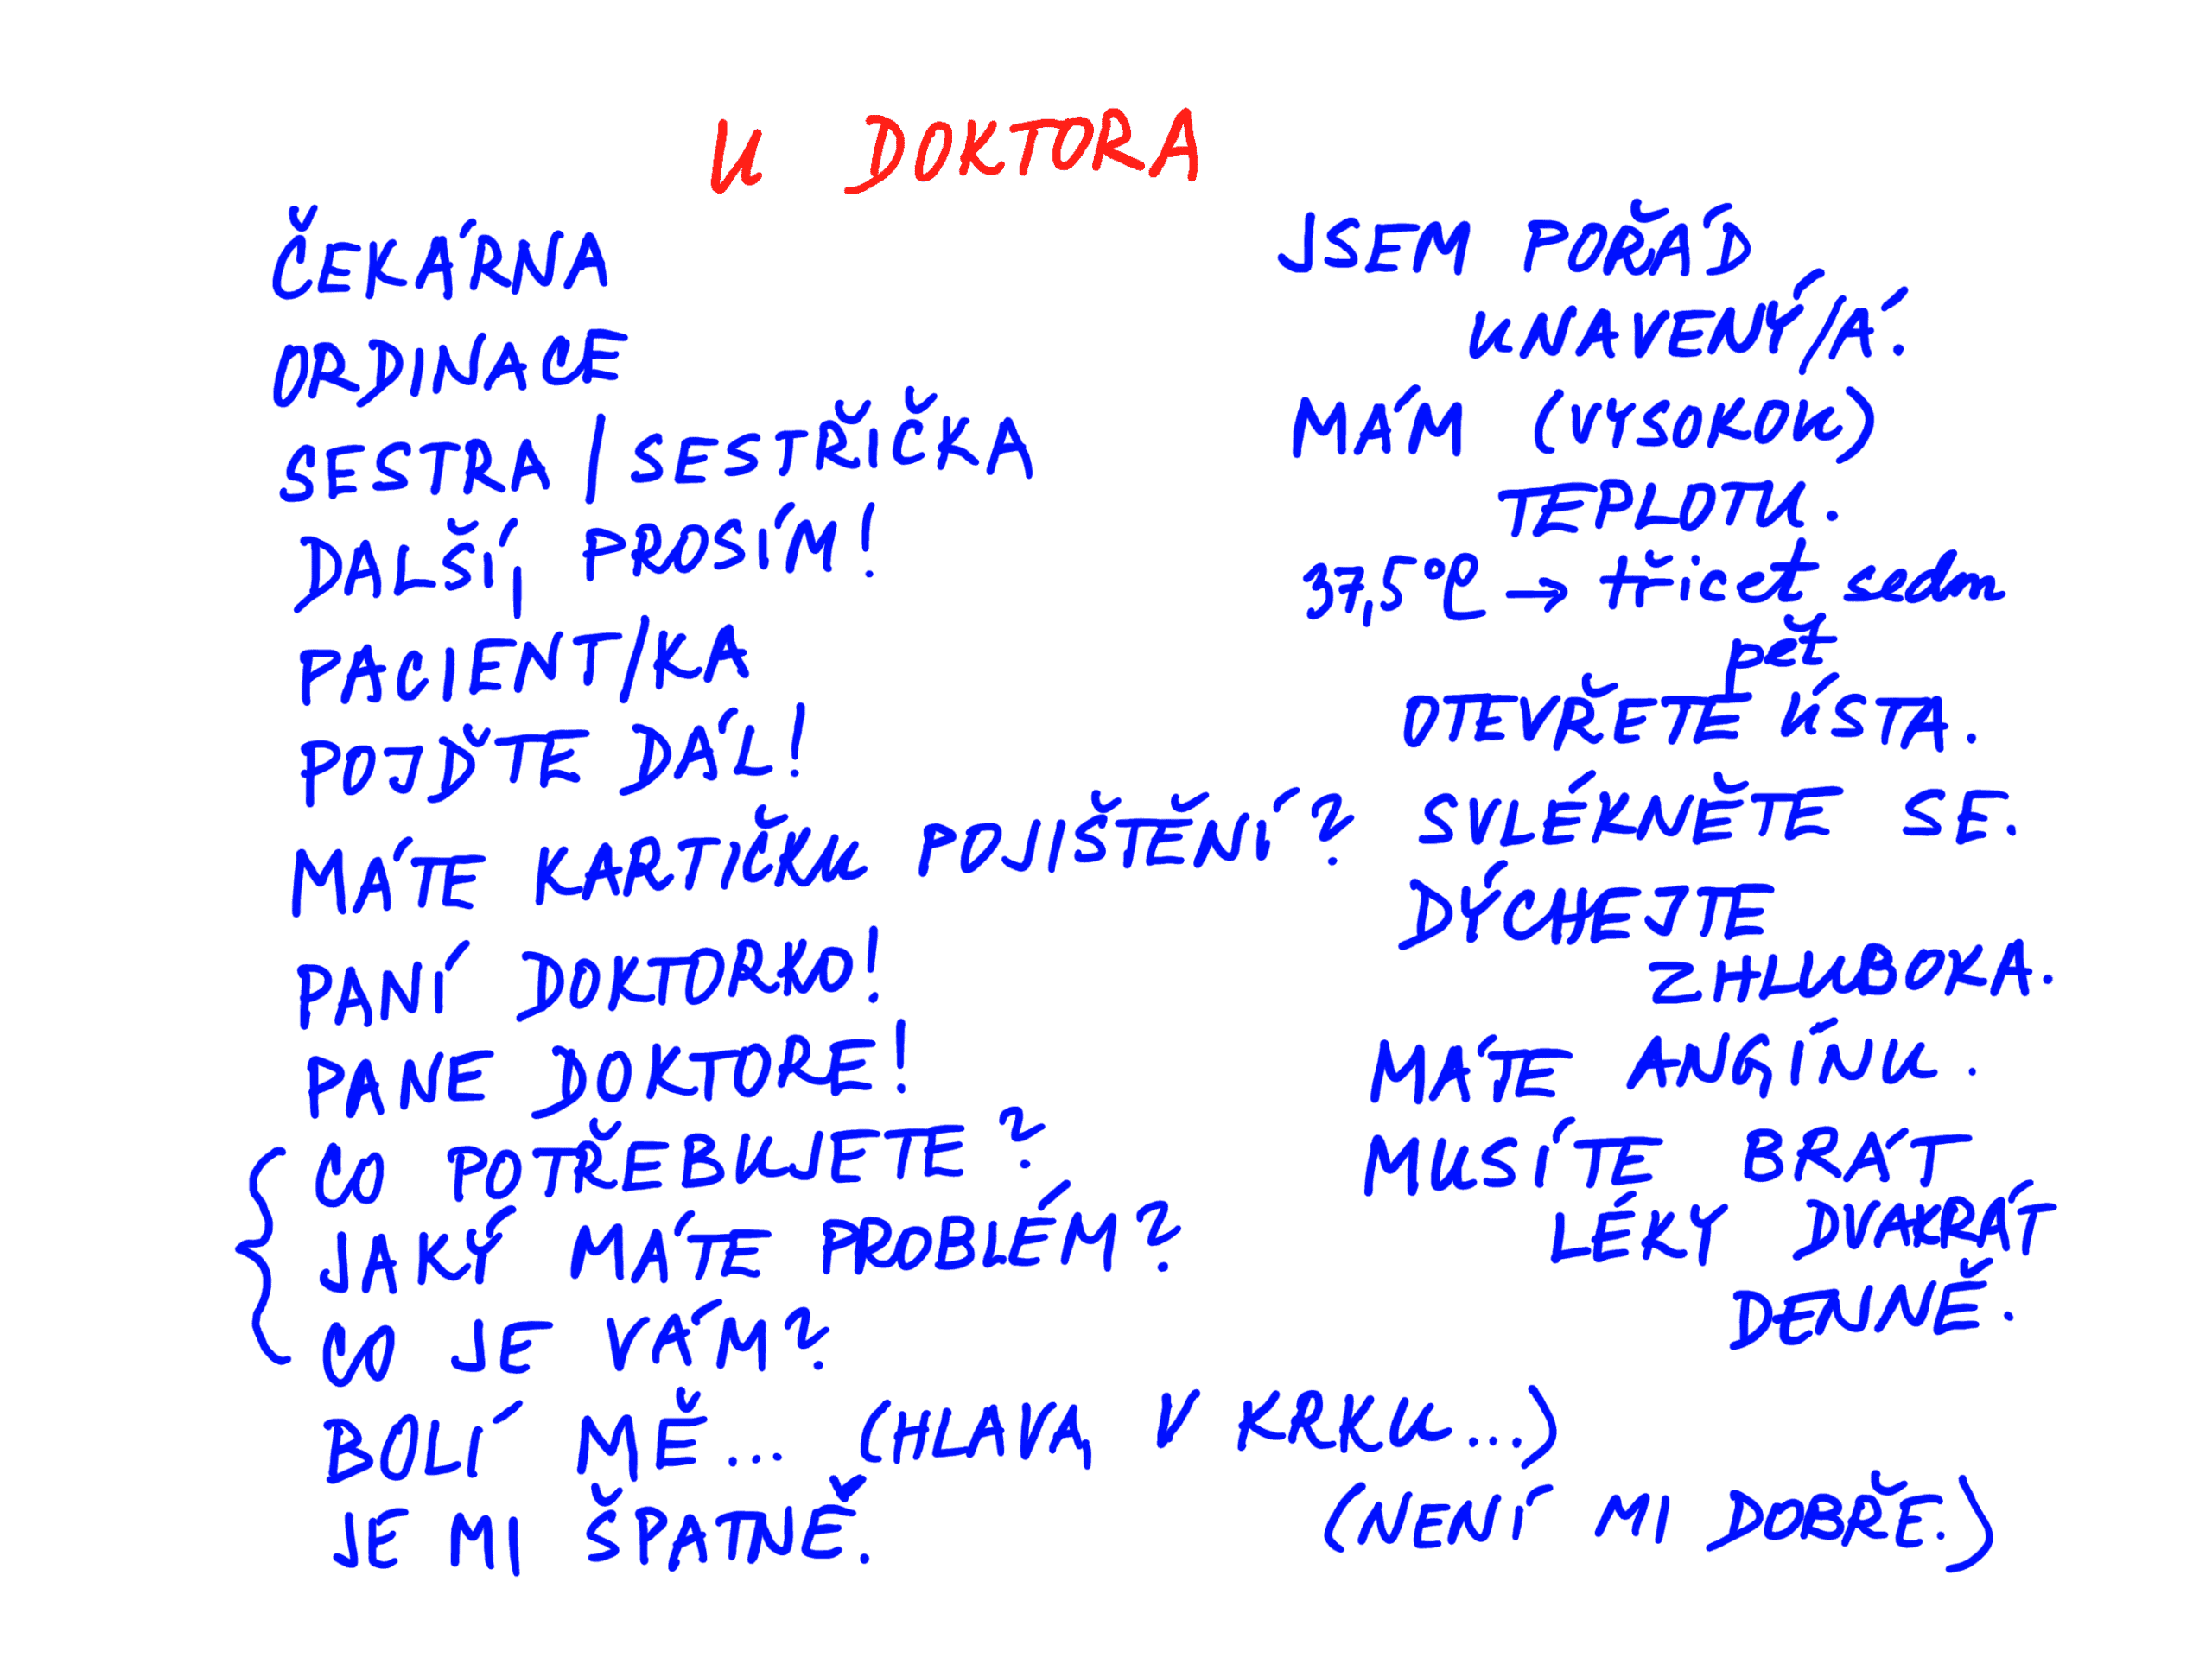 U DOKTORA
ČEKÁRNA
ORDINACE
SESTRA / SESTŘIČKA
DALŠÍ, PROSÍM!
PACIENT/KA
POJĎTE DÁL!
MÁTE KARTIČKU POJIŠTĚNÍ?
PANÍ DOKTORKO!
PANE DOKTORE!
CO POTŘEBUJETE?
JAKÝ MÁTE PROBLÉM?
CO JE VÁM?
BOLÍ MĚ... (HLAVA, V KRKU...)
JE MI ŠPATNĚ.
(NENÍ MI DOBŘE.)
JSEM POŘÁD
UNAVENÝ/Á.
MÁM (VYSOKOU)
TEPLOTU.
37,5°C → třicet sedm
pět
OTEVŘETE ÚSTA.
SVLÉKNĚTE SE.
DÝCHEJTE
ZHLUBOKA.
MÁTE ANGÍNU.
MUSÍTE BRÁT
LÉKY DVAKRÁT
DENNĚ.